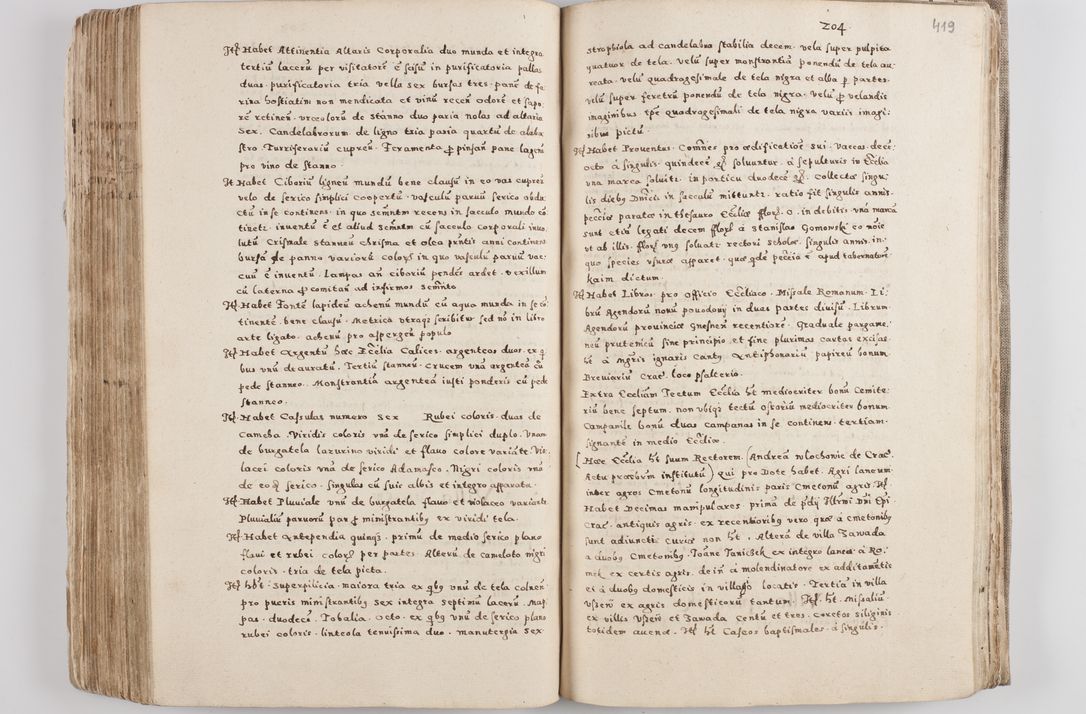 Itẽ Habet Attinentia Altaris Corporalia duo munda et integra
tertiũ lacerũ per visitatorẽ ẽ scisũ in purificatoria pallas
duas. purificatoria tria vella sex bursas tres. panẽ de fa,
rina hostiatim non mendicata et vinũ recẽn odorẽ et sapo,
rẽ retinen. vrceolorũ de stanno duo paria nolas ad altaria
sex. Candelabrorum de ligno tria paria quartũ de alaba
stro. Turriferariũ cupreũ. Feramenta ꝓ pinsan pane lagenũ
pro vino de stanno.
It Habet Ciboriũ ligneũ mundũ bene clausũ in eo vas cupreũ
velo de serico simplici coopertũ. vasculũ paruũ serico obdu
ctũ in se continens. in quo semtm recens in sacculo mundo cõ
tinetr. inuentũ ẽ et aliud semtm cũ sacculo corporali inuo,
lutũ. Crismale stanneũ chrisma et olea pntis anni continens
bursa de panno variorũ colorũ in quo vasculũ paruũ vac,
cuũ ẽ inuentũ. Lampas añ ciboriũ pendẽs ardet. vexillum
cũ laterna ꝓ comitañ ad infirmos semto
Itẽ Habet Fontẽ lapideũ achenũ mundũ cũ aqua munda in se cõ
tinentẽ. bene clausũ. Metrica vtraqꝫ scribitur sed nõ in libro
arte ligato. achenũ pro aspergen populo
Itẽ Habet Argentũ hæc Ecclia Calices. argenteos duos. ex q̃
bus vnũ deauratũ. Tertiũ stanneũ. Crucem vnã argenteã cũ
pede stanneo. Monstrantiã argenteã iusti ponderis cũ pede
stanneo.
Itẽ Habet Cassulas numero sex Rubei coloris. duas de
Camcha. Viridis coloris vnã de serico simplici duplo. Vnam
de burgatela lazurino viridi et flauo colore variatã. Vio,
lacei coloris vnã de serico Adamasco. Nigri coloris vnã
de eodẽ serico. singulas cũ suis albis et integro apparatu.
Itẽ Habet Pluuiale vnũ de burgatela flauo et violaceo variante
Pluuialiũ paruorũ par ꝓ ministrantibꝰ ex viridi tela.
Itẽ Habet Antependia quinqꝫ. primũ de medio serico plano
flaui et rubei colorũ per partes. Alterũ de cameloto nigri
coloris. tria de tela picta.
Itẽ hbt superpilicia. maiora tria ex qbꝰ vnũ de tela colnẽ
pro pueris ministrantibꝰ sex integra septimũ lacerũ. Map,
pas. duodecũ. Tobalia. octo. ex qbꝰ vnũ de serico plano
rubei coloris. linteola tenuissima duo. manutergia sex
204 419
strophiola ad candelabra stabilia decem. vela super pulpita
quatuor de tela. velũ super monstrantiã ponendũ de tela au,
reata. velũ quadragesimale de tela nigra et alba ꝓ partes.
velũ super feretrũ ponendũ de tela nigra. velũ ꝓ velandis
imaginibus tpe quadragesimali de tela nigra variis imagi,
nibus pictũ.
Itẽ Habet Prouentus. Comñes pro ædificatiõe sui. Vaccas decẽ
octo à singulis. quindecẽ gr soluuntur. à sepulturis in Ecclia
vna marca soluitr. in porticu duodecẽ gr. collectæ singu,
lis diebꝰ Dnicis in sacculũ mittuntr. ratio fit singulis annis.
pecciæ paratæ in thesauro Eccliæ flore. 0. in debitis. vna marca
sunt etiã legati decem flore à Stanislao Gomonski eo nõie
vt ab illis. flore vnꝰ soluatr rectori scholæ. singulis annis. in,
quo species vsuræ apparet. quæ qde peccia ẽ apud tabernatorẽ
kaim dictum.
Itẽ Habet Libros pro officio Eccliaco. Missale Romanum. Li,
brũ Agendorũ nouũ pouodouy in duas partes diuisũ. Librum
Agendorũ prouinciæ Gnesneñ recentiorẽ. Graduale pargame,
neũ prutenicũ sine principio et fine plurimas cartas excisas
ht à mgris ignaris cantꝰ. Antiphonariũ papireũ bonum
Breuiariũ Crac. loco psalterio.
Extra Eccliam Tectum Ecclia ht mediocriter bonũ Cemite,
riũ bene septum. non vbiqꝫ tectũ ostoriũ mediocriter bonum.
Campanile bonũ duas campanas in se continens. tertiam.
signantẽ in medio Eccliæ.
Hæc Ecclia ht suum Rectorem (Andreã wlochowic de Crac.
Actu præsbrum institutũ) qui pro Dote habet. Agri laneum
inter agros Cmetonũ longitudinis paris Cmetonũ agris. Itẽ
Habet Decimas manipulares. prima de pdij Illrmi Dni Epi
Crac. antiquis agris. ex recentioribꝰ vero quæ à cmetonibꝰ
sunt adiuncti curiæ non ht. Alterã de villa Zawada
à duobꝰ Cmetonibꝰ. Ioãne Taniczek ex integro laneo à Ro,
mek ex certis agris. deiñ à molendinatore ex additamẽtis
et à duobꝰ domesticis in villagio locatis. Tertiã in villa
vssew ex agris domesticorũ tantum. Itẽ ht. Missaliũ
ex villis vssew et Zawada Centũ et tres. coretos siliginis
totidem auenæ. Itẽ ht Caseos baptismales. à singulis.